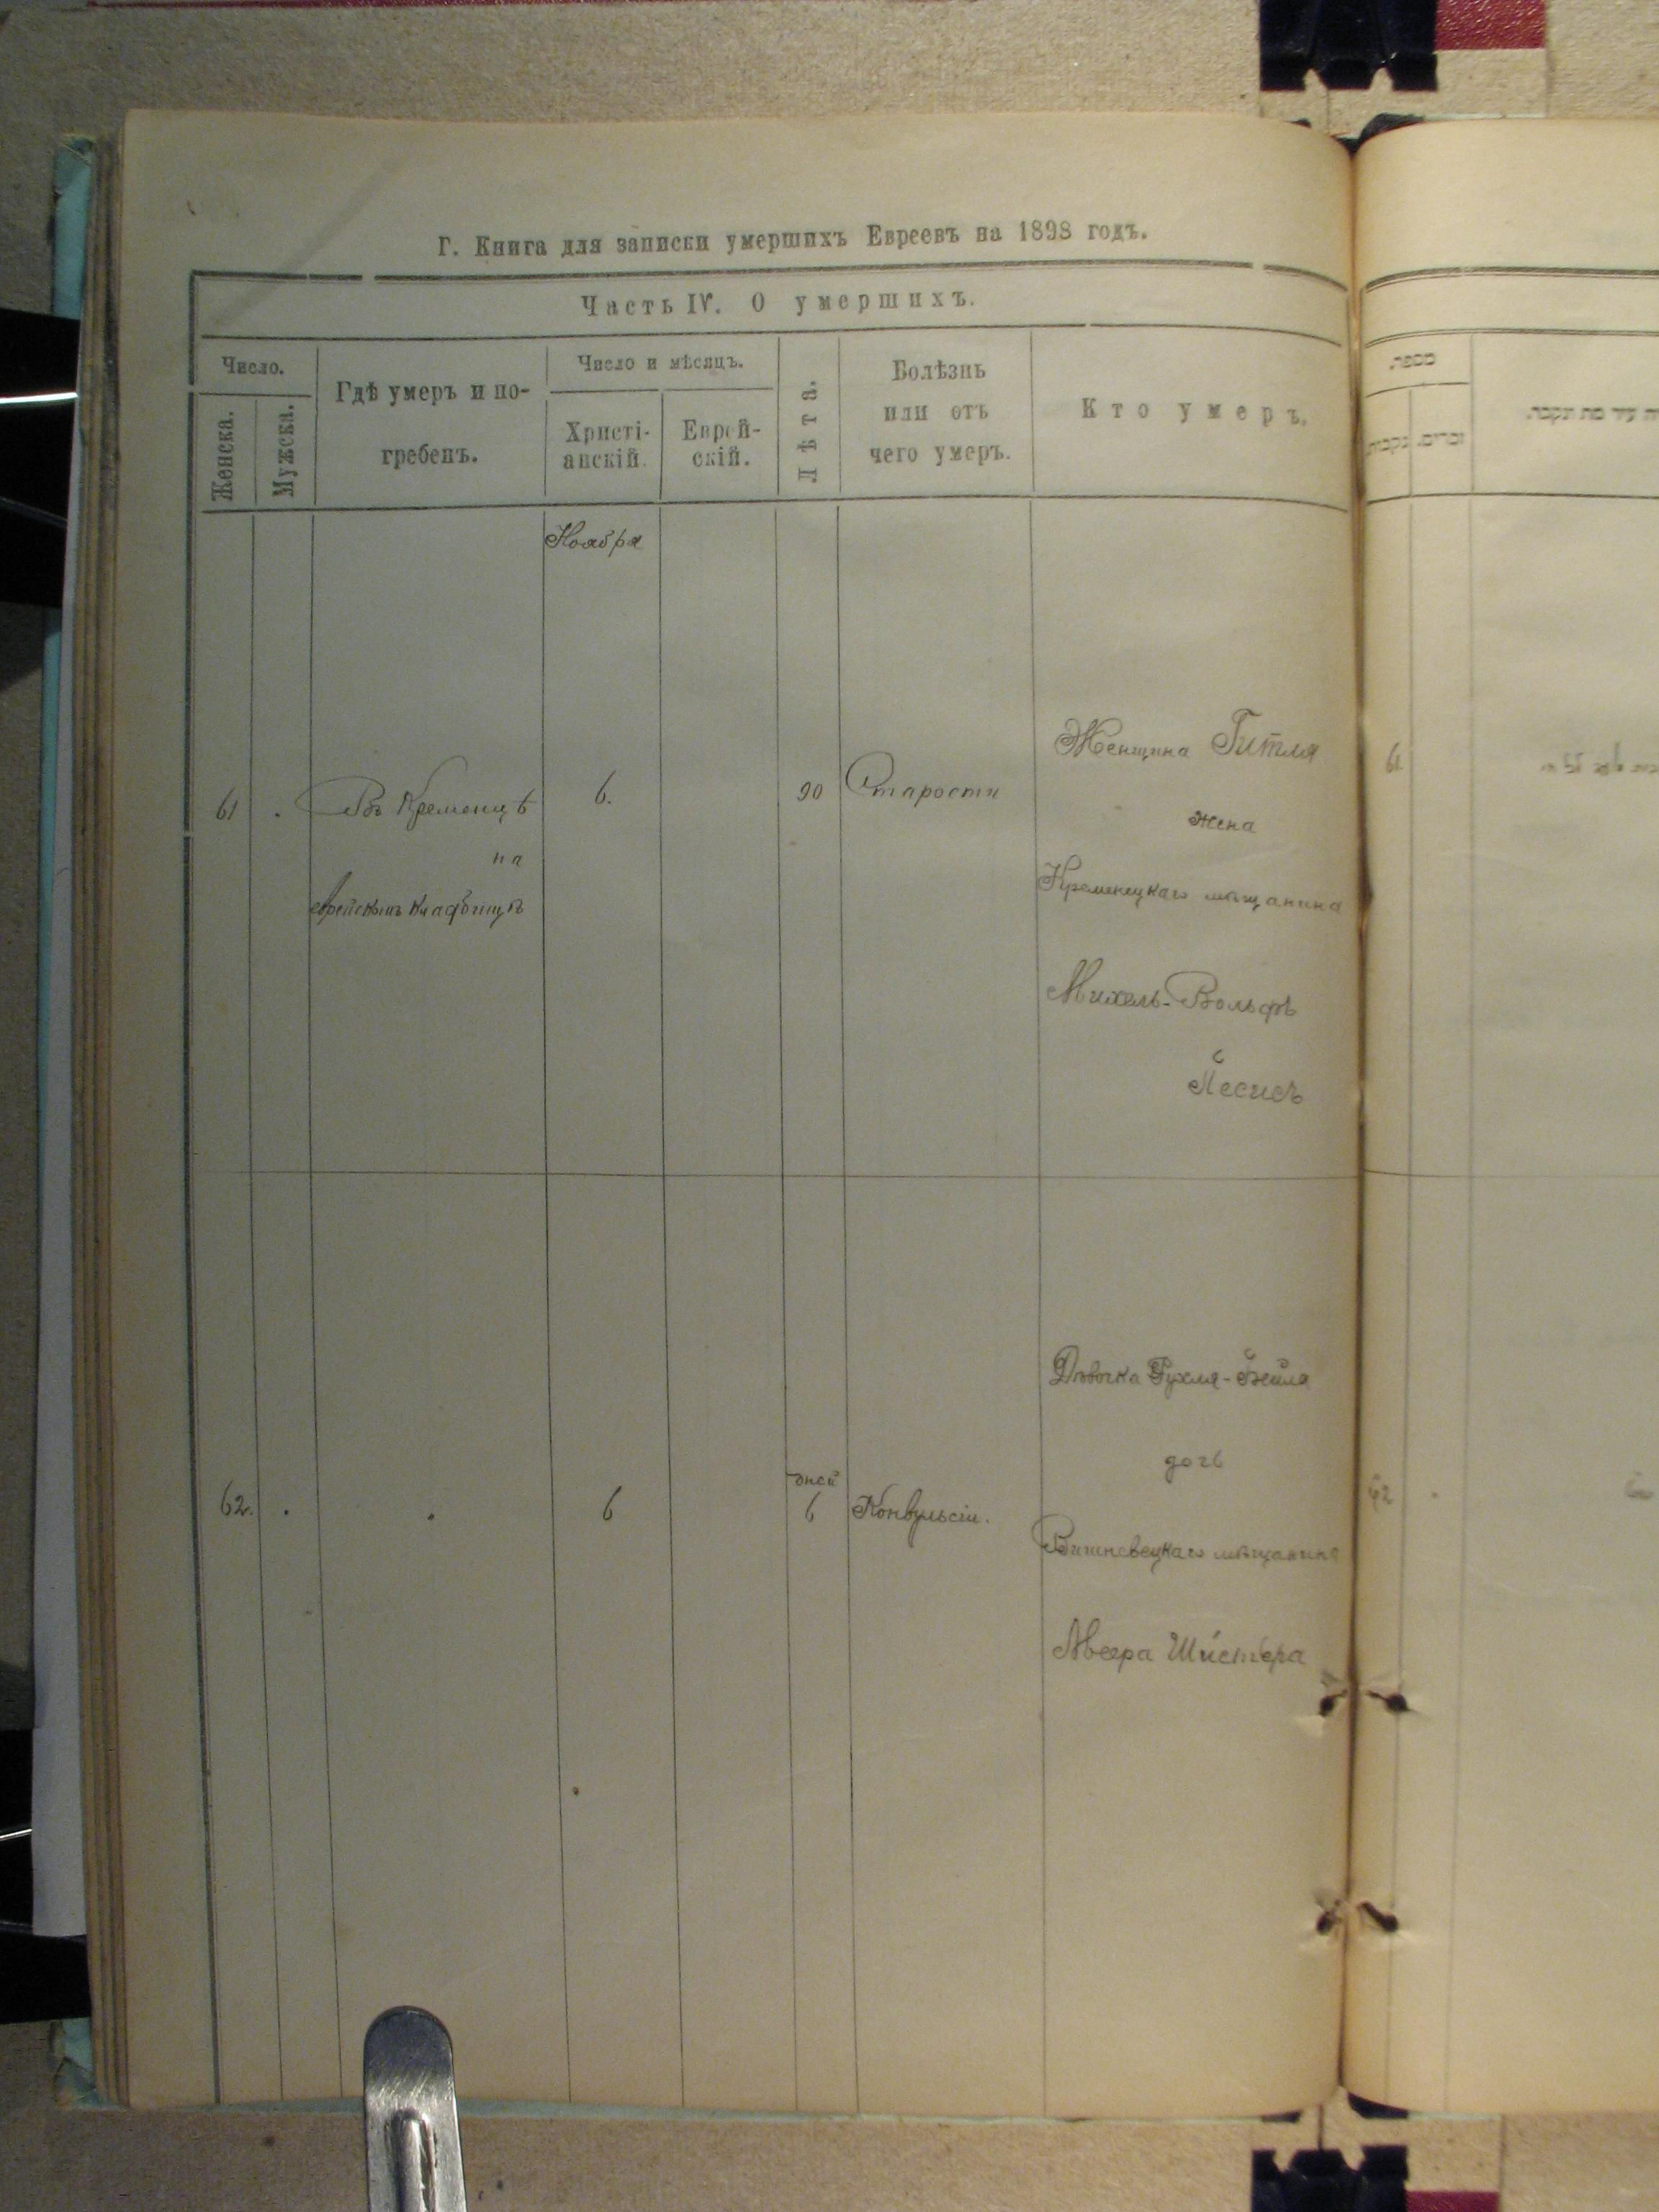 Г. Книга для записки умершихъ Евреевъ на 1898 годъ.
Часть IV. О умершихъ.
Число.
Женска.
Мужска.
Гдѣ умеръ и по-
гребенъ.
Число и мѣсяцъ.
Христі-
анскій.
Еврей-
скій.
Лѣта.
Болѣзнь
или отъ
чего умеръ.
Кто умеръ.
Ноября
61
Въ Кременцѣ
на
еврейскомъ кладбищѣ
6.
90
Старости
Женщина Гитля
жена
Кременецкаго мѣщанина
Михель-Вольфъ
Песисъ
62.
6
дней
6
Конвульсіи.
Дѣвочка Рухля-Бейля
дочь
Вишневецкаго мѣщанина
מספר.
זכרים.
נקבות.
עיר מת ונקבר.
61.
62